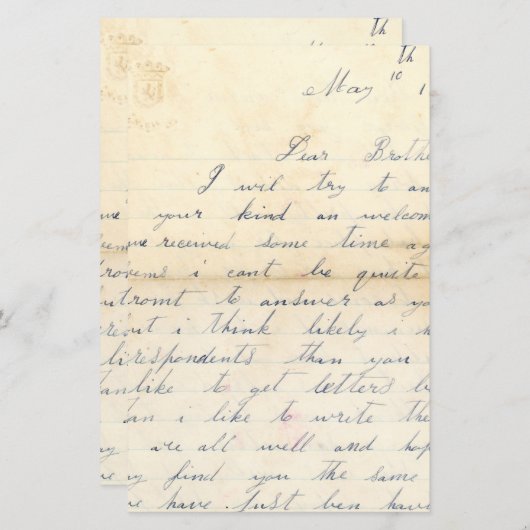 th
th
May 10 1
Dear Brothe
I wil try to an
your kind an welcom
we received some time ag
ems i cant be quite
romt to answer as yo
out i think likely i h
respondents than you
like to get letters b
an i like to write the
are all well and hop
y find you the same
have Just ben havi